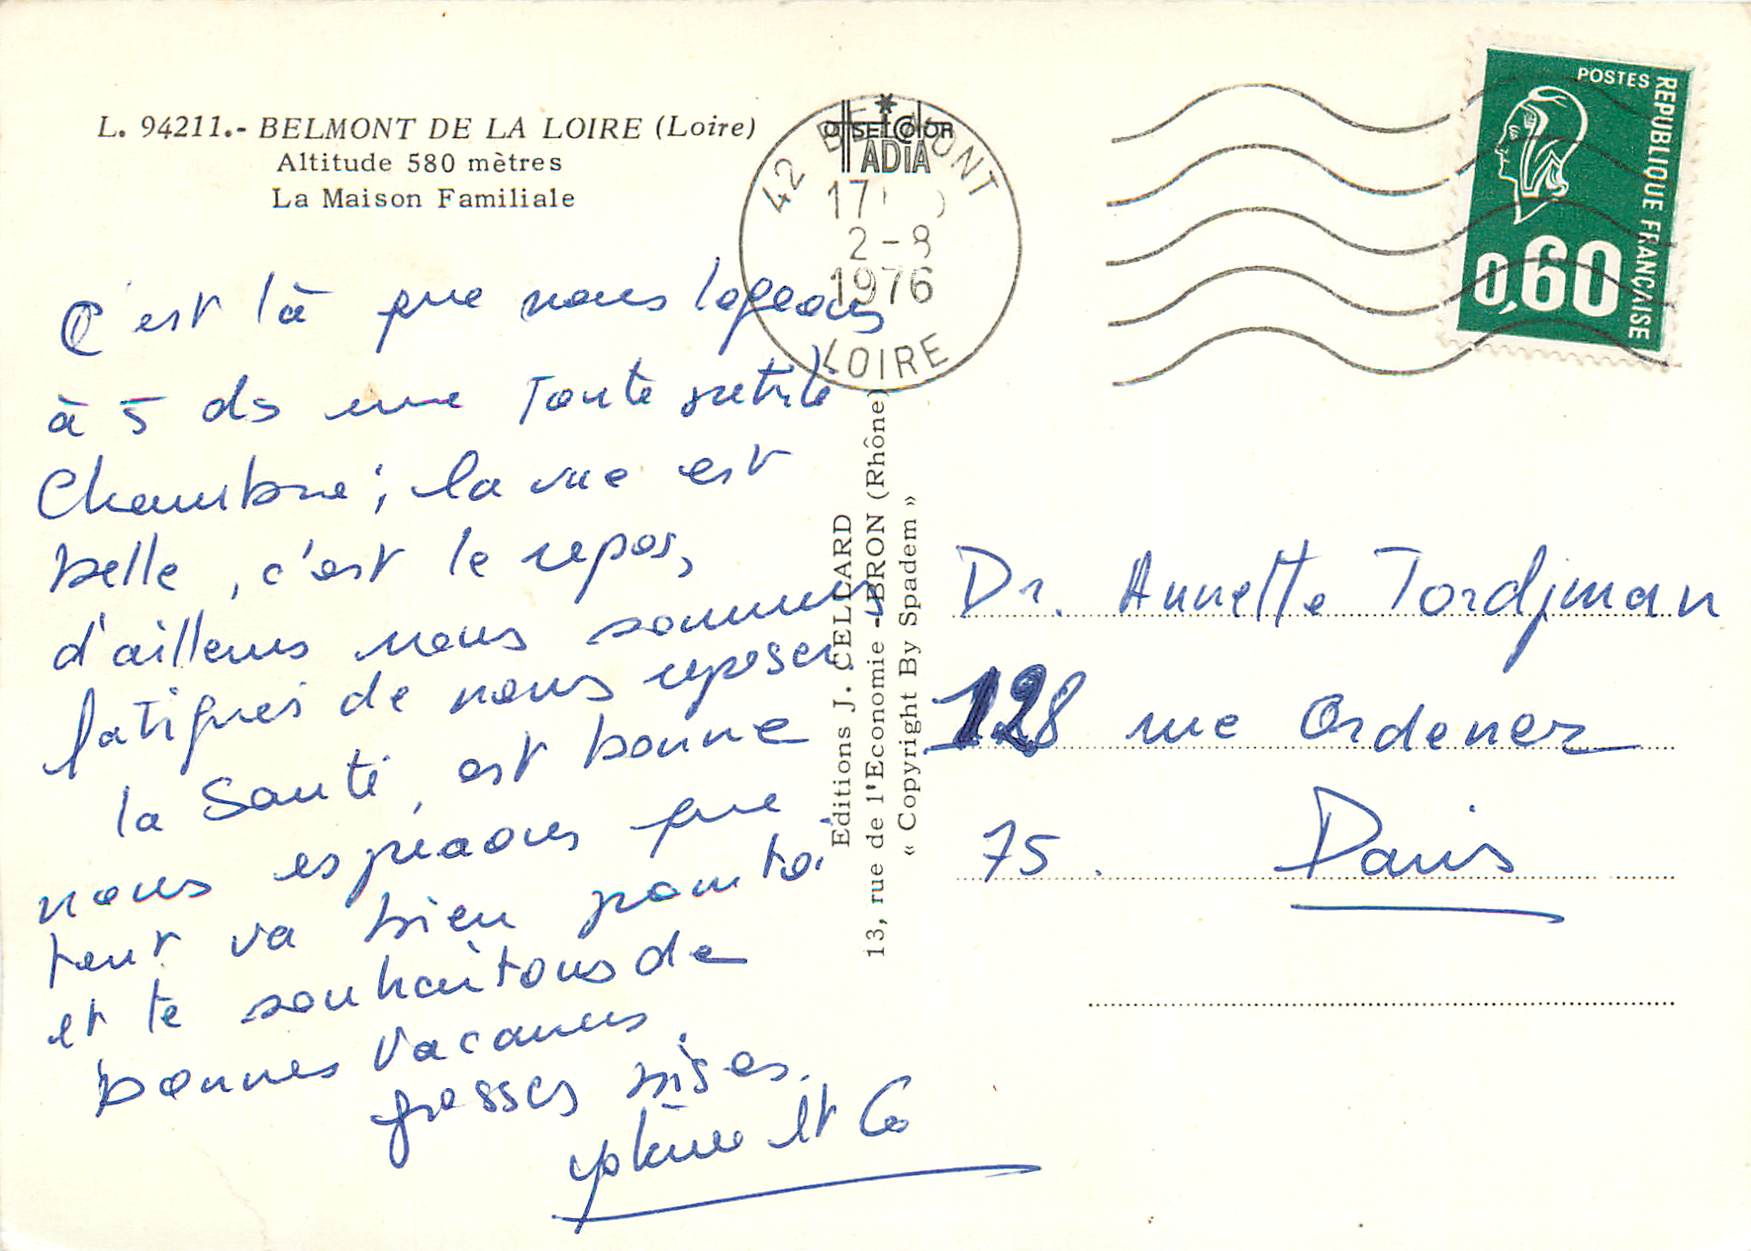 L. 94211.- BELMONT DE LA LOIRE (Loire)
Altitude 580 mètres
La Maison Familiale
C'est là que nous logeons
à 5 ds une toute petite
Chambre ; la vue est
belle, c'est le repos,
d'ailleurs nous sommes
fatigués de nous reposer
la Santé, est bonne
nous espérons que
tout va bien pour toi
et te souhaitons de
bonnes Vacances
grosses bises.
et Co
42 BELMONT
17
2-8
1976
LOIRE
ADIA
Editions J. CELLARD
13, rue de l'Economie - BRON (Rhône)
« Copyright By Spadem »
POSTES
REPUBLIQUE FRANÇAISE
0,60
Dr. Annette Tordjman
128 rue Ordener
75. Paris